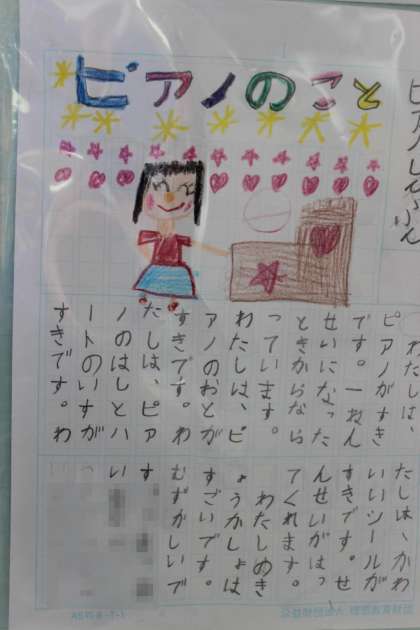 ピアノのこと
ピアノしんぶん
わたしは、
ピアノがすき
です。一ねん
せいになった
ときからなら
っています。
わたしは、ピ
アノのおとが
すきです。わ
たしは、ピア
ノのはしとハ
ートのいすが
すきです。わ
たしは、かわ
いいシールが
すきです。せ
んせいがはっ
てくれます。
わたしめき
ょうかしょは
すごいです。
むずかしいで
す
い